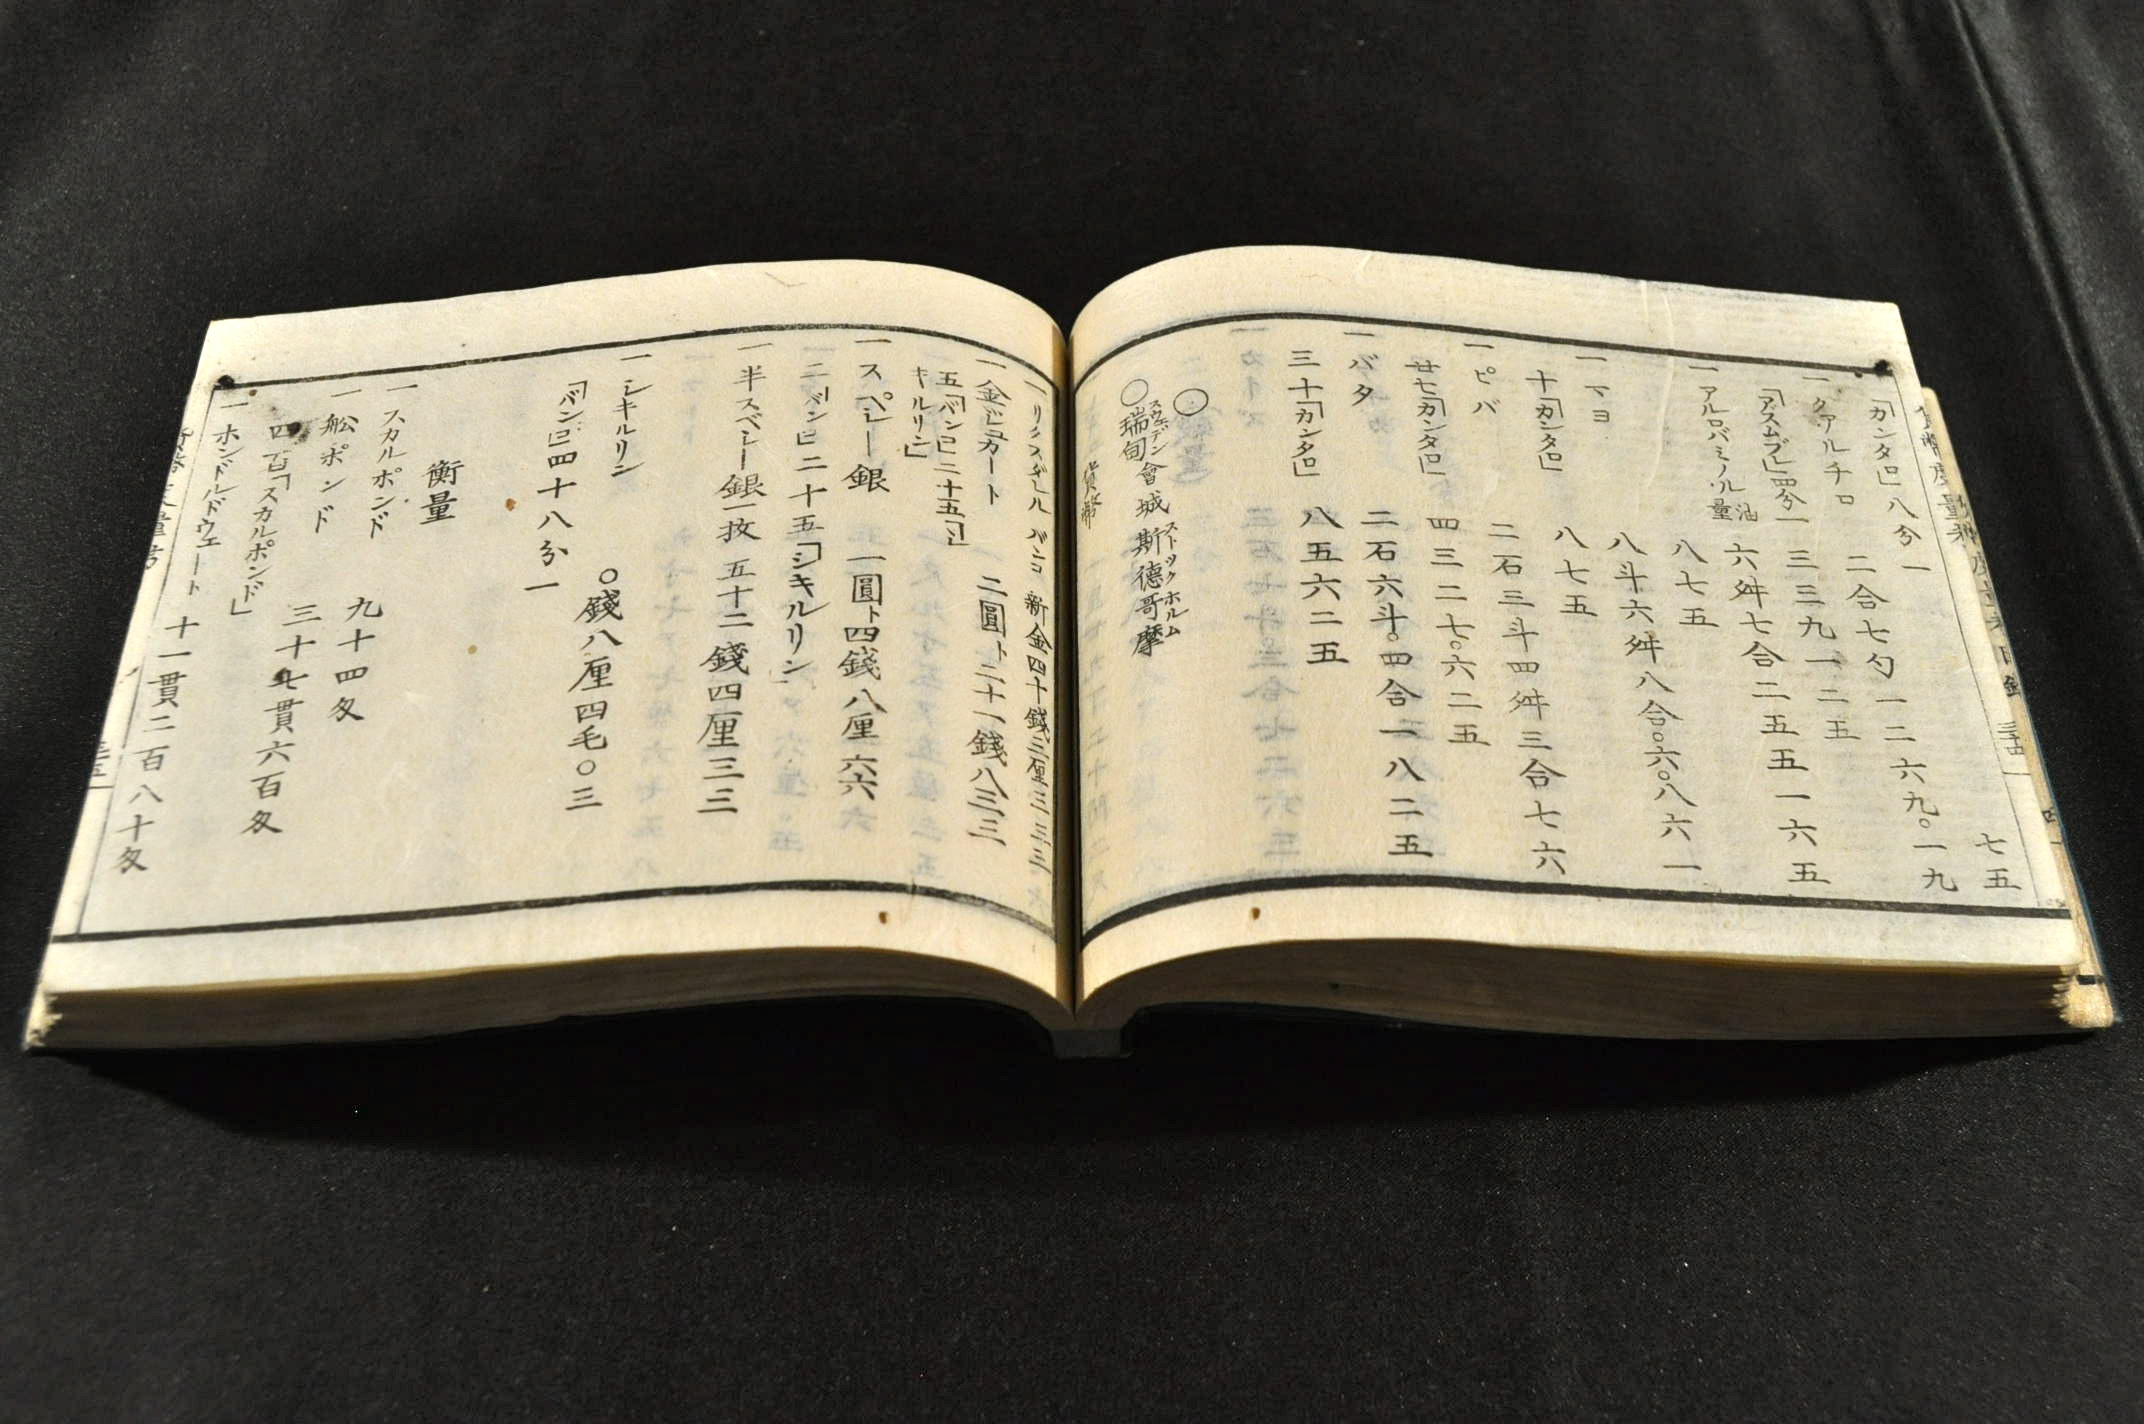 「カンタロ」八分一 七五
一クアルチロ 二合七勺一二六九。一九
「アスムブレ」四分一 三三九一二五
一アルロバミノル 油量 六舛七合二五五一六五
八七五
一マヨ 八斗六舛八合。六。八六一
十「カンタロ」 八七五
一ピバ 二石三斗四舛三合七六
廿七「カンタロ」 四三二七。六二五
一バタ 二石六斗。四合一八二五
三十「カンタロ」 八五六二五
○
○瑞甸會城斯德哥摩
スウェデン ストックホルム
貨幣
バンコ 新金四十錢三厘三三三
一金ドュカート 二圓ト二十一錢八三三
五「バンコ」二十五「シ
キルリン」
一スペシー銀 一圓ト四錢八厘六六
二「バンコ」二十五「シキルリン」
一半スペシー銀一枚 五十二錢四厘三三
一シキルリン ○錢八厘四毛○三
「バンコ」四十八分一
衡量
一スカルポンド 九十四匁
一舩ポンド 三十七貫六百匁
四百「スカルポンド」
一ホンドルドウェート 十一貫二百八十匁